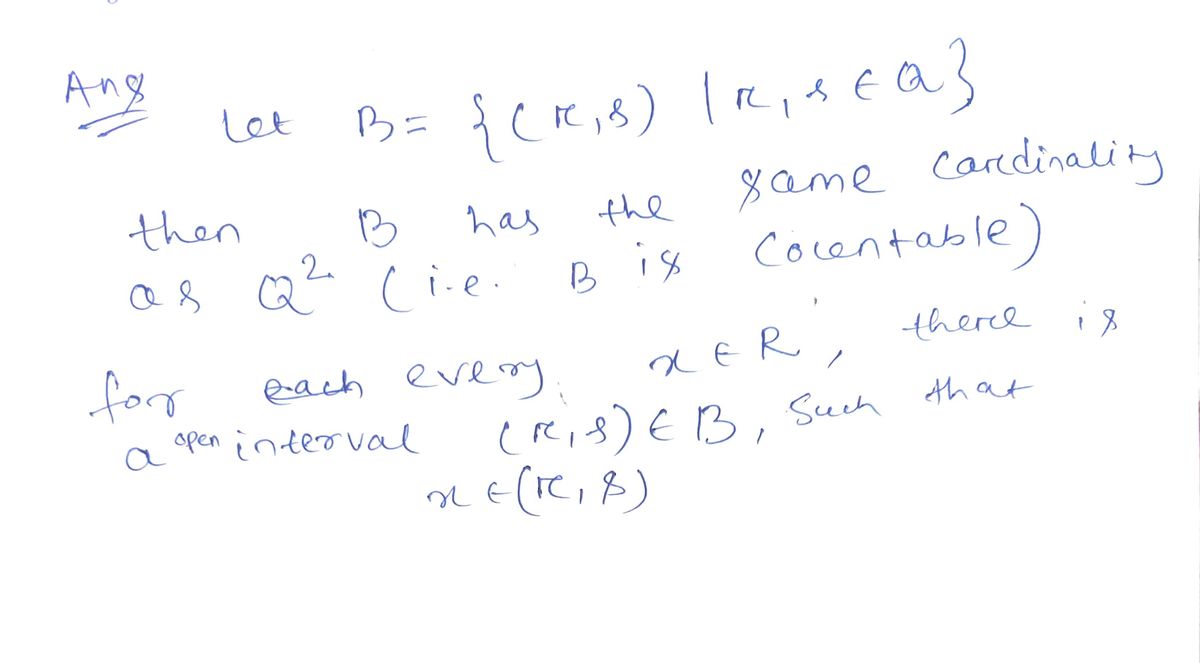 Ans
Let B = {(r,s) | r, s ∈ Q}
then B has the same cardinality
as Q² (i.e. B is countable)
for each every x ∈ R, there is
a open interval (r,s) ∈ B, such that
x ∈ (r, s)